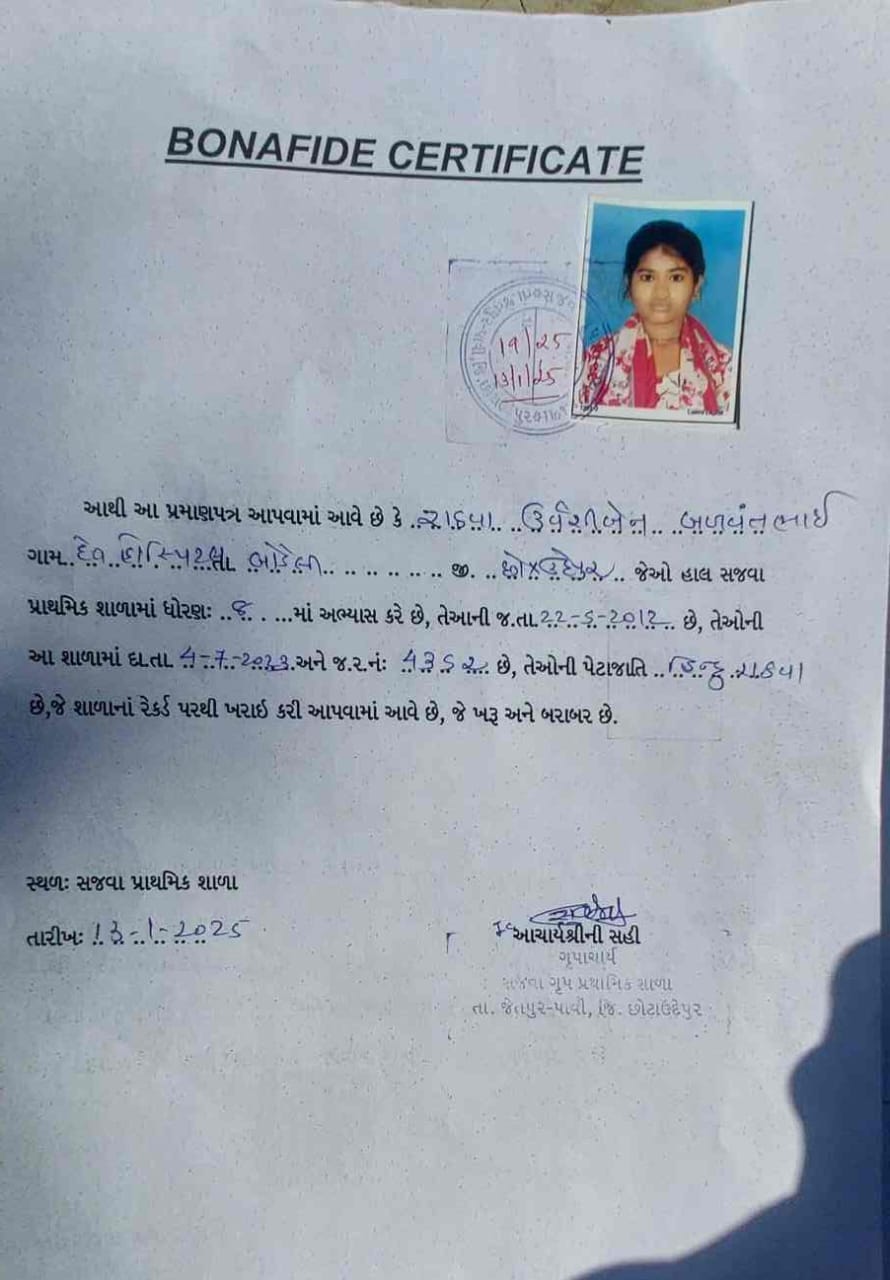 BONAFIDE CERTIFICATE
19/25
13/1/25
આથી આ પ્રમાણપત્ર આપવામાં આવે છે કે ..રાઠવા...ઉર્વશીબેન...બળવંતભાઈ
ગામ..દેવ હોસ્પિટલ તા. બોડેલી.. .. .. .. .. .. .. જી. ..છોટાઉદેપુર.. જેઓ હાલ સજવા
પ્રાથમિક શાળામાં ધોરણઃ ..8. . ...માં અભ્યાસ કરે છે, તેઆની જ.તા.22-5-2012.. છે, તેઓની
આ શાળામાં દા.તા 4-7-2023.અને જ.ર.નંઃ છે, તેઓની પેટાજાતિ ..હિન્દુ રાઠવા
છે,જે શાળાનાં રેકર્ડ પરથી ખરાઇ કરી આપવામાં આવે છે, જે ખરૂ અને બરાબર છે.
સ્થળઃ સજવા પ્રાથમિક શાળા
તારીખઃ 13-1-2025
આચાર્યશ્રીની સહી
ગૃપાચાર્ય
સજવા ગૃપ પ્રથામિક શાળા
તા. જેતપુર-પાવી, જિ. છોટાઉદેપુર